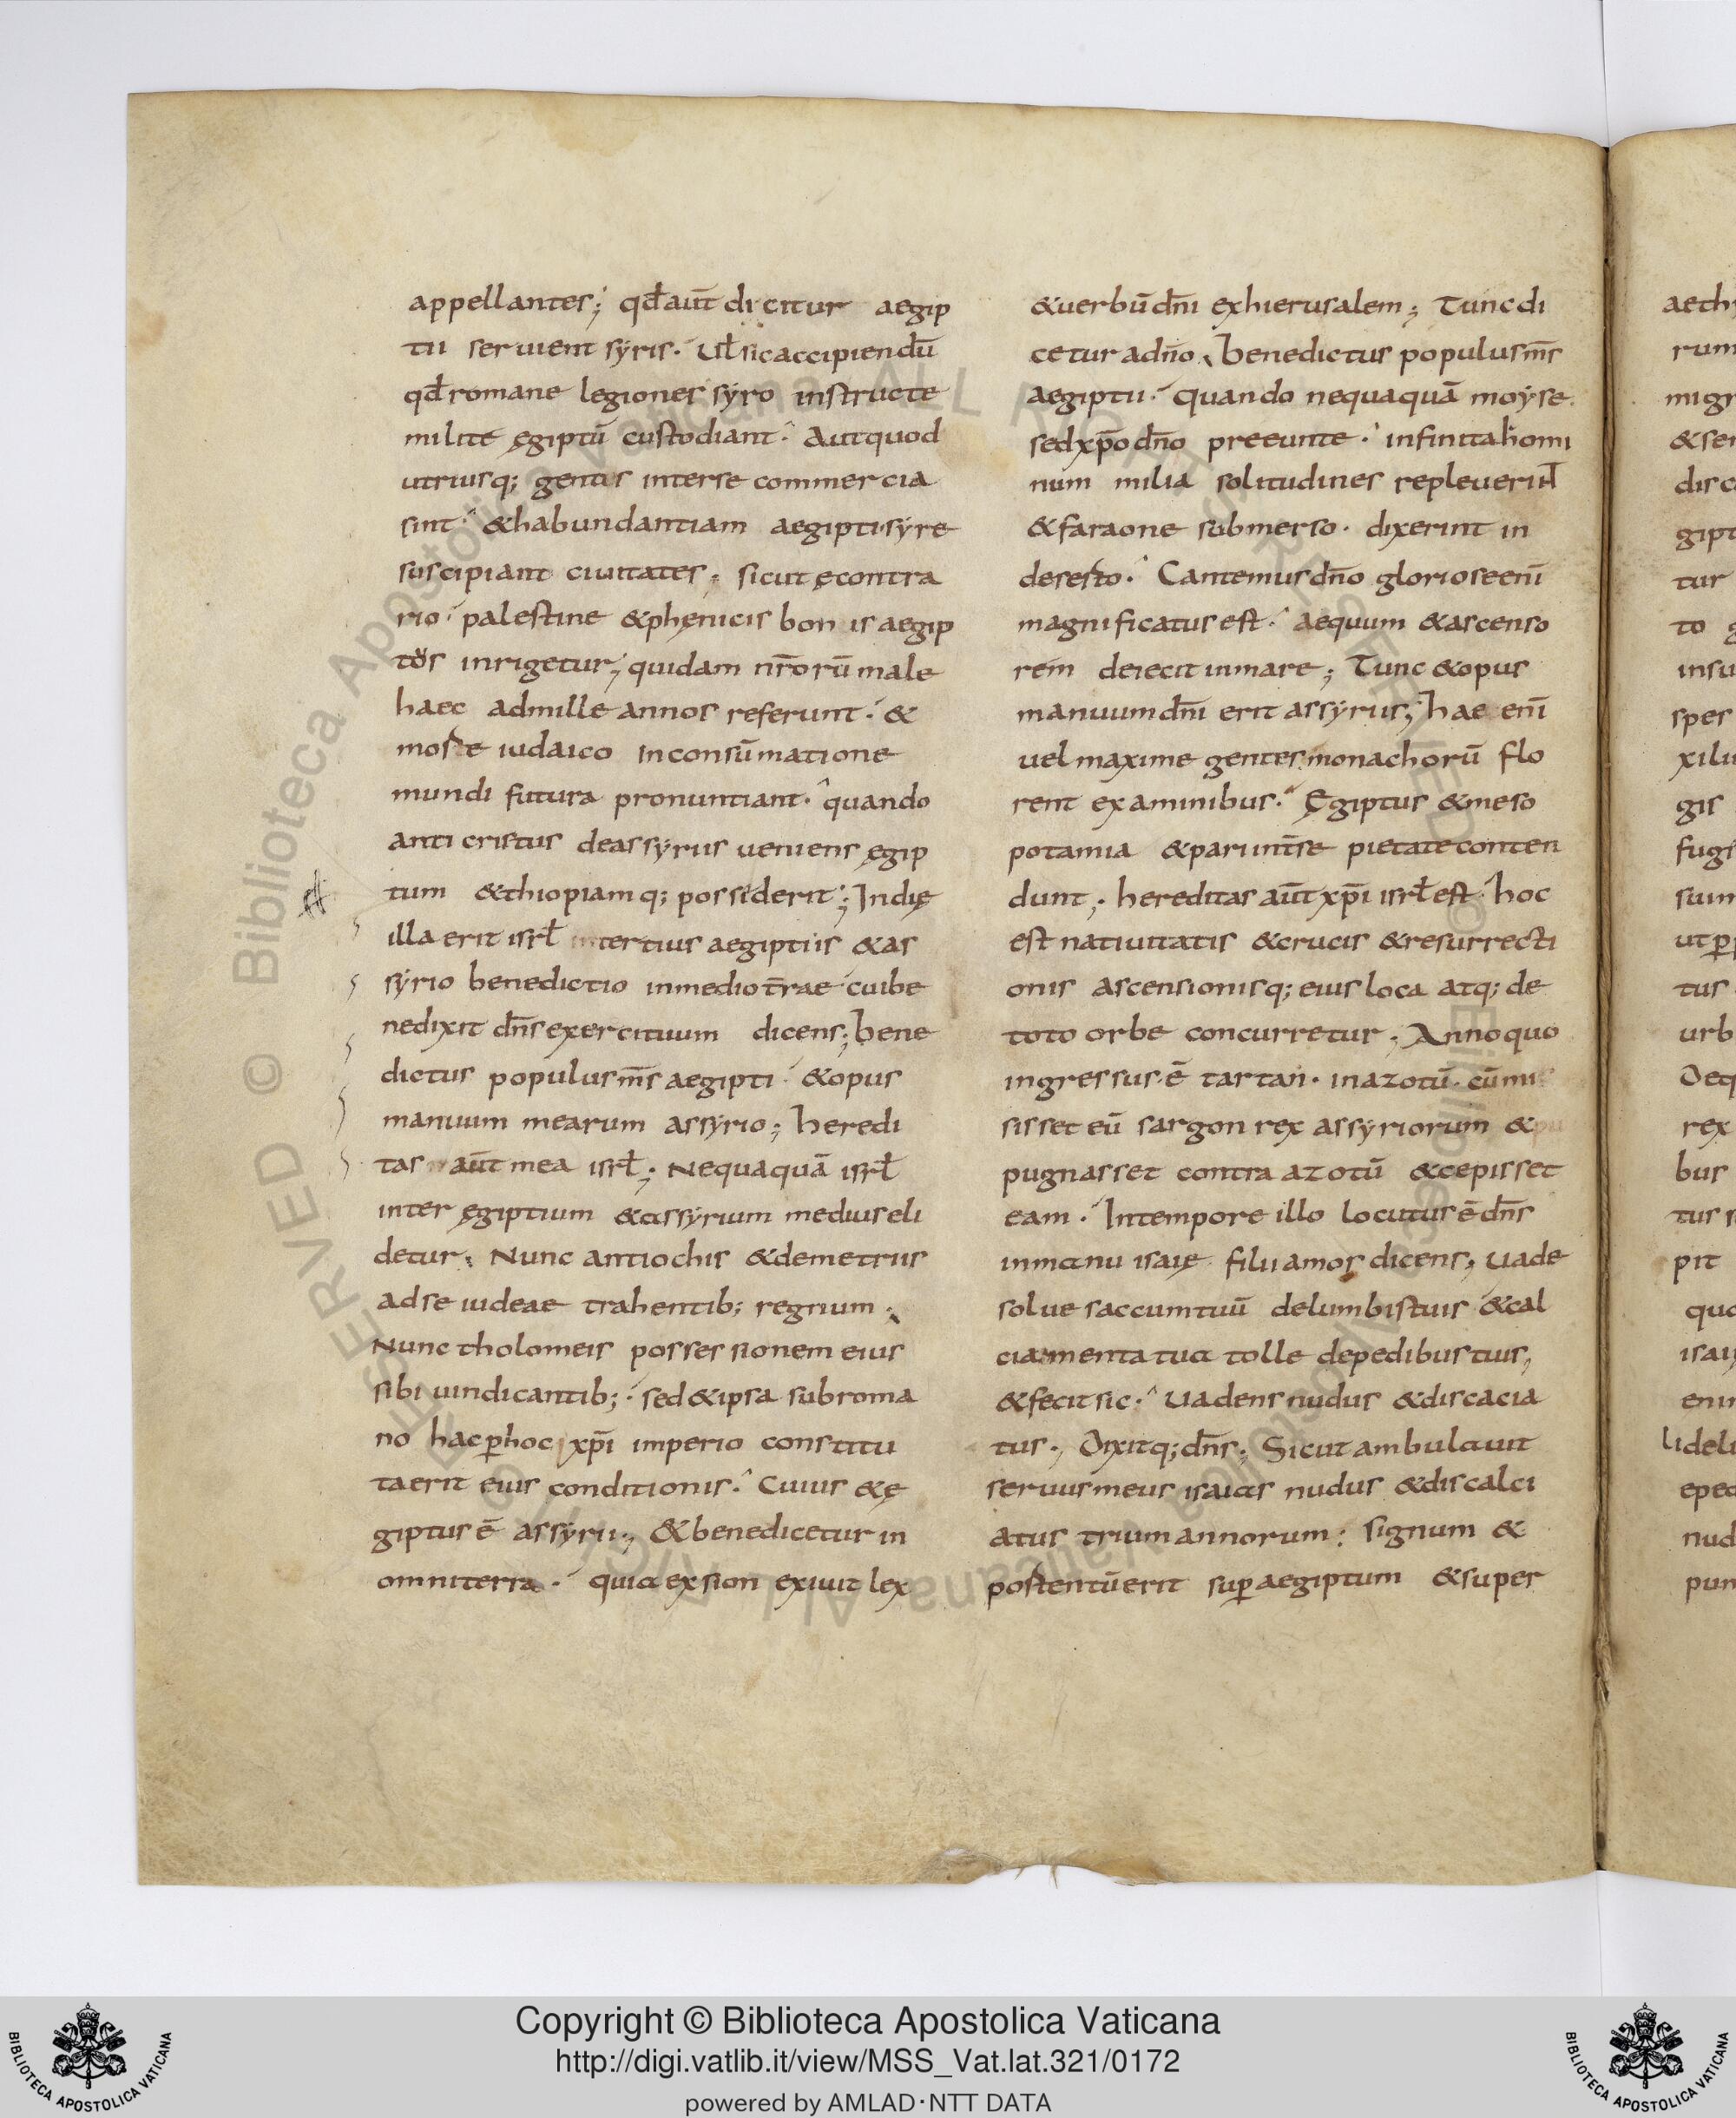 appellantes; qđ aut̄ dicitur aegip
tii seruient syris. Uł sic accipiendū
qđ romane legiones syro instructe
milite ęgiptū custodiant. Aut quod
utriusq; gentis inter se commercia
sint. & habundantiam aegipti syre
suscipiant ciuitates; sicut e contra
rio palestine & phęnicis bonis aegip
tos inrigetur; quidam nr̄orū male
haec ad mille annos referunt. &
moste iudaico in consūmatione
mundi futura pronuntiant. quando
anticristus de assyriis ueniens ęgip
tum &thiopiamq; possiderit; In die
illa erit isrł tertius aegiptiis & as
syrio benedictio in medio tr̄rae cui be
nedixit dn̄s exercituum dicens; bene
dictus populus m̄s aegipti & opus
manuum mearum assyrio; heredi
tas aut̄ mea isrł; Nequaquā isrł
inter ęgiptium & assyrium medius eli
detur; Nunc antiochis & demetriis
ad se iudeae trahentib; regnum.
Nunc tholomeis possessionem eius
sibi uindicantib; sed & ipsa sub roma
no hac ꝑ hoc xp̄i imperio constitu
ta erit eius conditionis. Cuius & ę
giptus ē assyrii; & benedicetur in
omni terra. quia ex sion exiuit lex
& uerbū dn̄i ex hierusalem; Tunc di
cetur a dn̄o, benedictus populus m̄s
aegiptii. quando nequaquā moyse
sed xp̄o dn̄o preeunte. infinita homi
num milia solitudines repleuerint
& faraone submerso. dixerint in
deserto. Cantemus dn̄o gloriose enī
magnificatus est. aequum & ascenso
rem deiecit in mare; Tunc & opus
manuum dn̄i erit assyrius; hae enī
uel maxime gentes monachorū flo
rent examinibus. Ęgiptus & meso
potamia & pari int̄ se pietate conten
dunt; hereditas aut̄ xp̄i isrł est. hoc
est natiuitatis & crucis & resurrecti
onis ascensionisq; eius loca atq; de
toto orbe concurretur; Anno quo
ingressus ē tartan. in azotū. cū mi
sisset eū sargon rex assyriorum &
pugnasset contra azotū & cepisset
eam. In tempore illo locutus ē dn̄s
in manu isaię filii amos dicens, uade
solue saccum tuū de lumbis tuis & cal
ciamenta tua tolle de pedibus tuis,
& fecit sic. Uadens nudus & discacia
tus; Dixitq; dn̄s; Sicut ambulauit
seruus meus isaias nudus & discalci
atus trium annorum: signum &
postentū erit suꝑ aegiptum & super
aeth
rum
migr
& ser
disc
gipt
tur
to
insu
sper
xilii
gis
fugi
sum
ut ꝑ
tus
urb
Deq
rex
bus
tus s
pit
quo
isai
enim
li del
eped
nud
pun
Copyright © Biblioteca Apostolica Vaticana
http://digi.vatlib.it/view/MSS_Vat.lat.321/0172
powered by AMLAD·NTT DATA
BIBLIOTECA APOSTOLICA VATICANA
BIBLIOTECA APOSTOLICA VATICANA